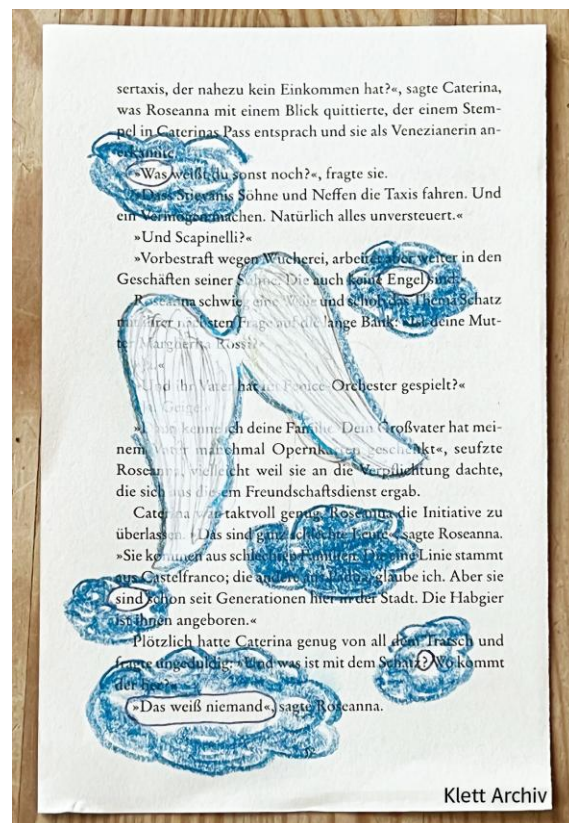 sertaxis, der nahezu kein Einkommen hat?«, sagte Caterina,
was Roseanna mit einem Blick quittierte, der einem Stem-
pel in Caterinas Pass entsprach und sie als Venezianerin an-
erkannte.
»Was weißt du sonst noch?«, fragte sie.
»Dass Stievanis Söhne und Neffen die Taxis fahren. Und
ein Vermögen machen. Natürlich alles unversteuert.«
»Und Scapinelli?«
»Vorbestraft wegen Wucherei, arbeitet aber weiter in den
Geschäften seiner Söhne. Die auch keine Engel sind.«
Roseanna schwieg eine Weile und schob das Thema Schatz
mit ihrer nächsten Frage auf die lange Bank: »Ist deine Mut-
ter Margherita Rossi?«
»Ja.«
»Und ihr Vater hat im Fenice-Orchester gespielt?«
»Ja. Geige.«
»Dann kenne ich deine Familie. Dein Großvater hat mei-
nem Vater manchmal Opernkarten geschenkt«, seufzte
Roseanna, vielleicht weil sie an die Verpflichtung dachte,
die sich aus diesem Freundschaftsdienst ergab.
Caterina war taktvoll genug, Roseanna die Initiative zu
überlassen. »Das sind ganz schlechte Leute«, sagte Roseanna.
»Sie kommen aus schlechten Familien. Die eine Linie stammt
aus Castelfranco; die andere aus Padua, glaube ich. Aber sie
sind schon seit Generationen hier in der Stadt. Die Habgier
ist ihnen angeboren.«
Plötzlich hatte Caterina genug von all dem Tratsch und
fragte ungeduldig: »Und was ist mit dem Schatz? Wo kommt
der her?«
»Das weiß niemand«, sagte Roseanna.
Klett Archiv